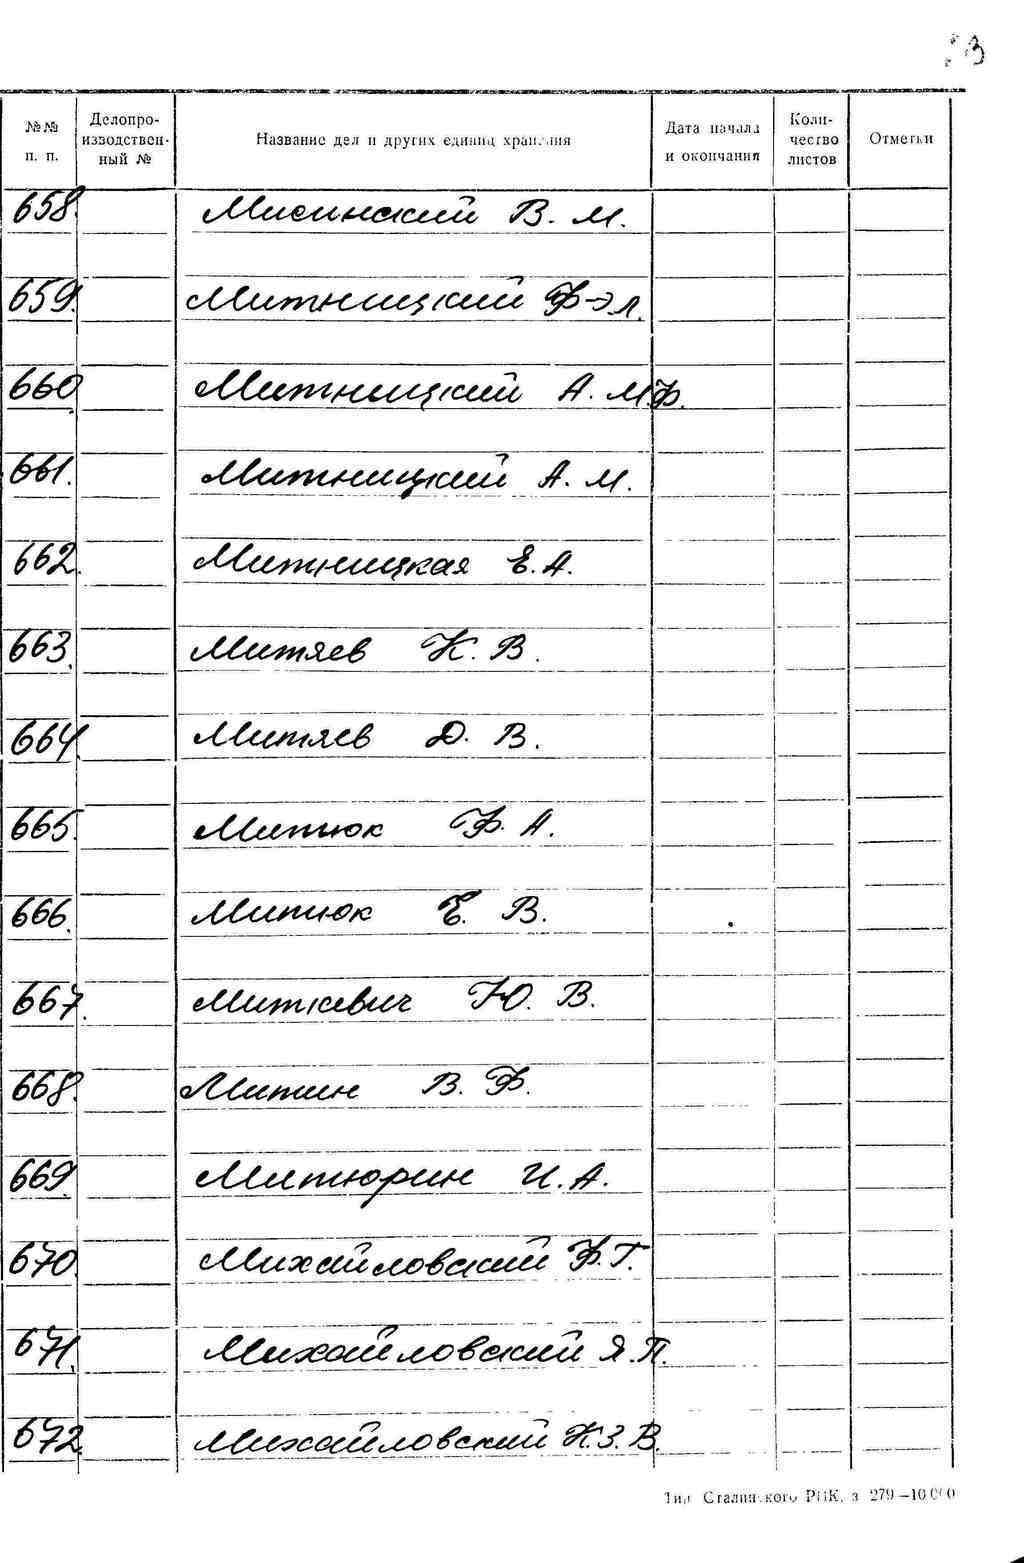 №№ п. п.
Делопроизводственный №
Название дел и других единиц хранения
Дата начала и окончания
Количество листов
Отметки
658. Мисинский В. М.
659. Митницкий Ф-Э Л.
660. Митницкий А. М.Ф.
661. Митницкий А. М.
662. Митницкая Е. А.
663. Митяев К. В.
664. Митяев Д. В.
665. Митюк Ф. А.
666. Митюк Е. В.
667. Миткевич Ю. В.
668. Митин В. Ф.
669. Митюрин И. А.
670. Михайловский Ф. Г.
671. Михайловский Я. П.
672. Михайловский К. З. В.
Тип. Сталинского РПК, з 279—10000